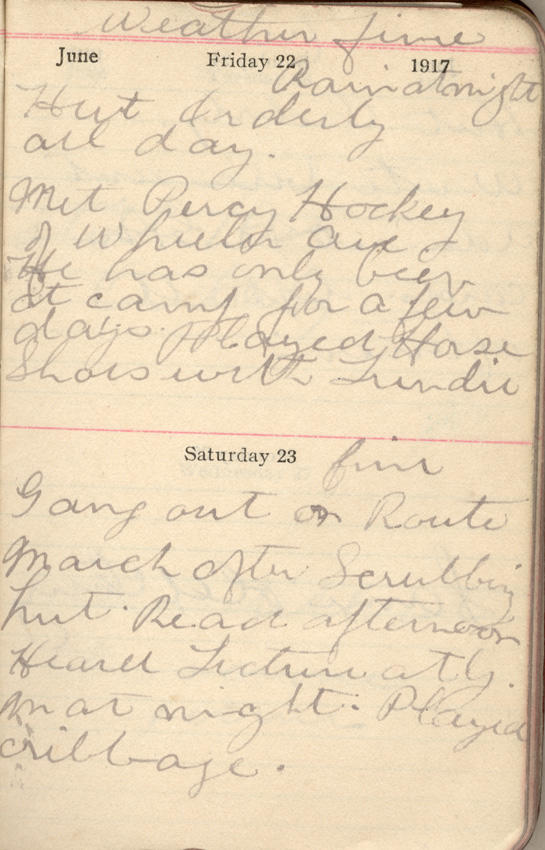 Weather fine
June Friday 22 1917
Rain at night
Hut Orderly
all day.
Met Percy Hockey
of Wheeler Ave
He has only been
at camp for a few
days. Played Horse
Shoes with
Saturday 23 fine
Gang out on Route
March after Scrubbing
hut. Read afternoon
Heard Lecture at Y.
M at night. Played
cribbage.